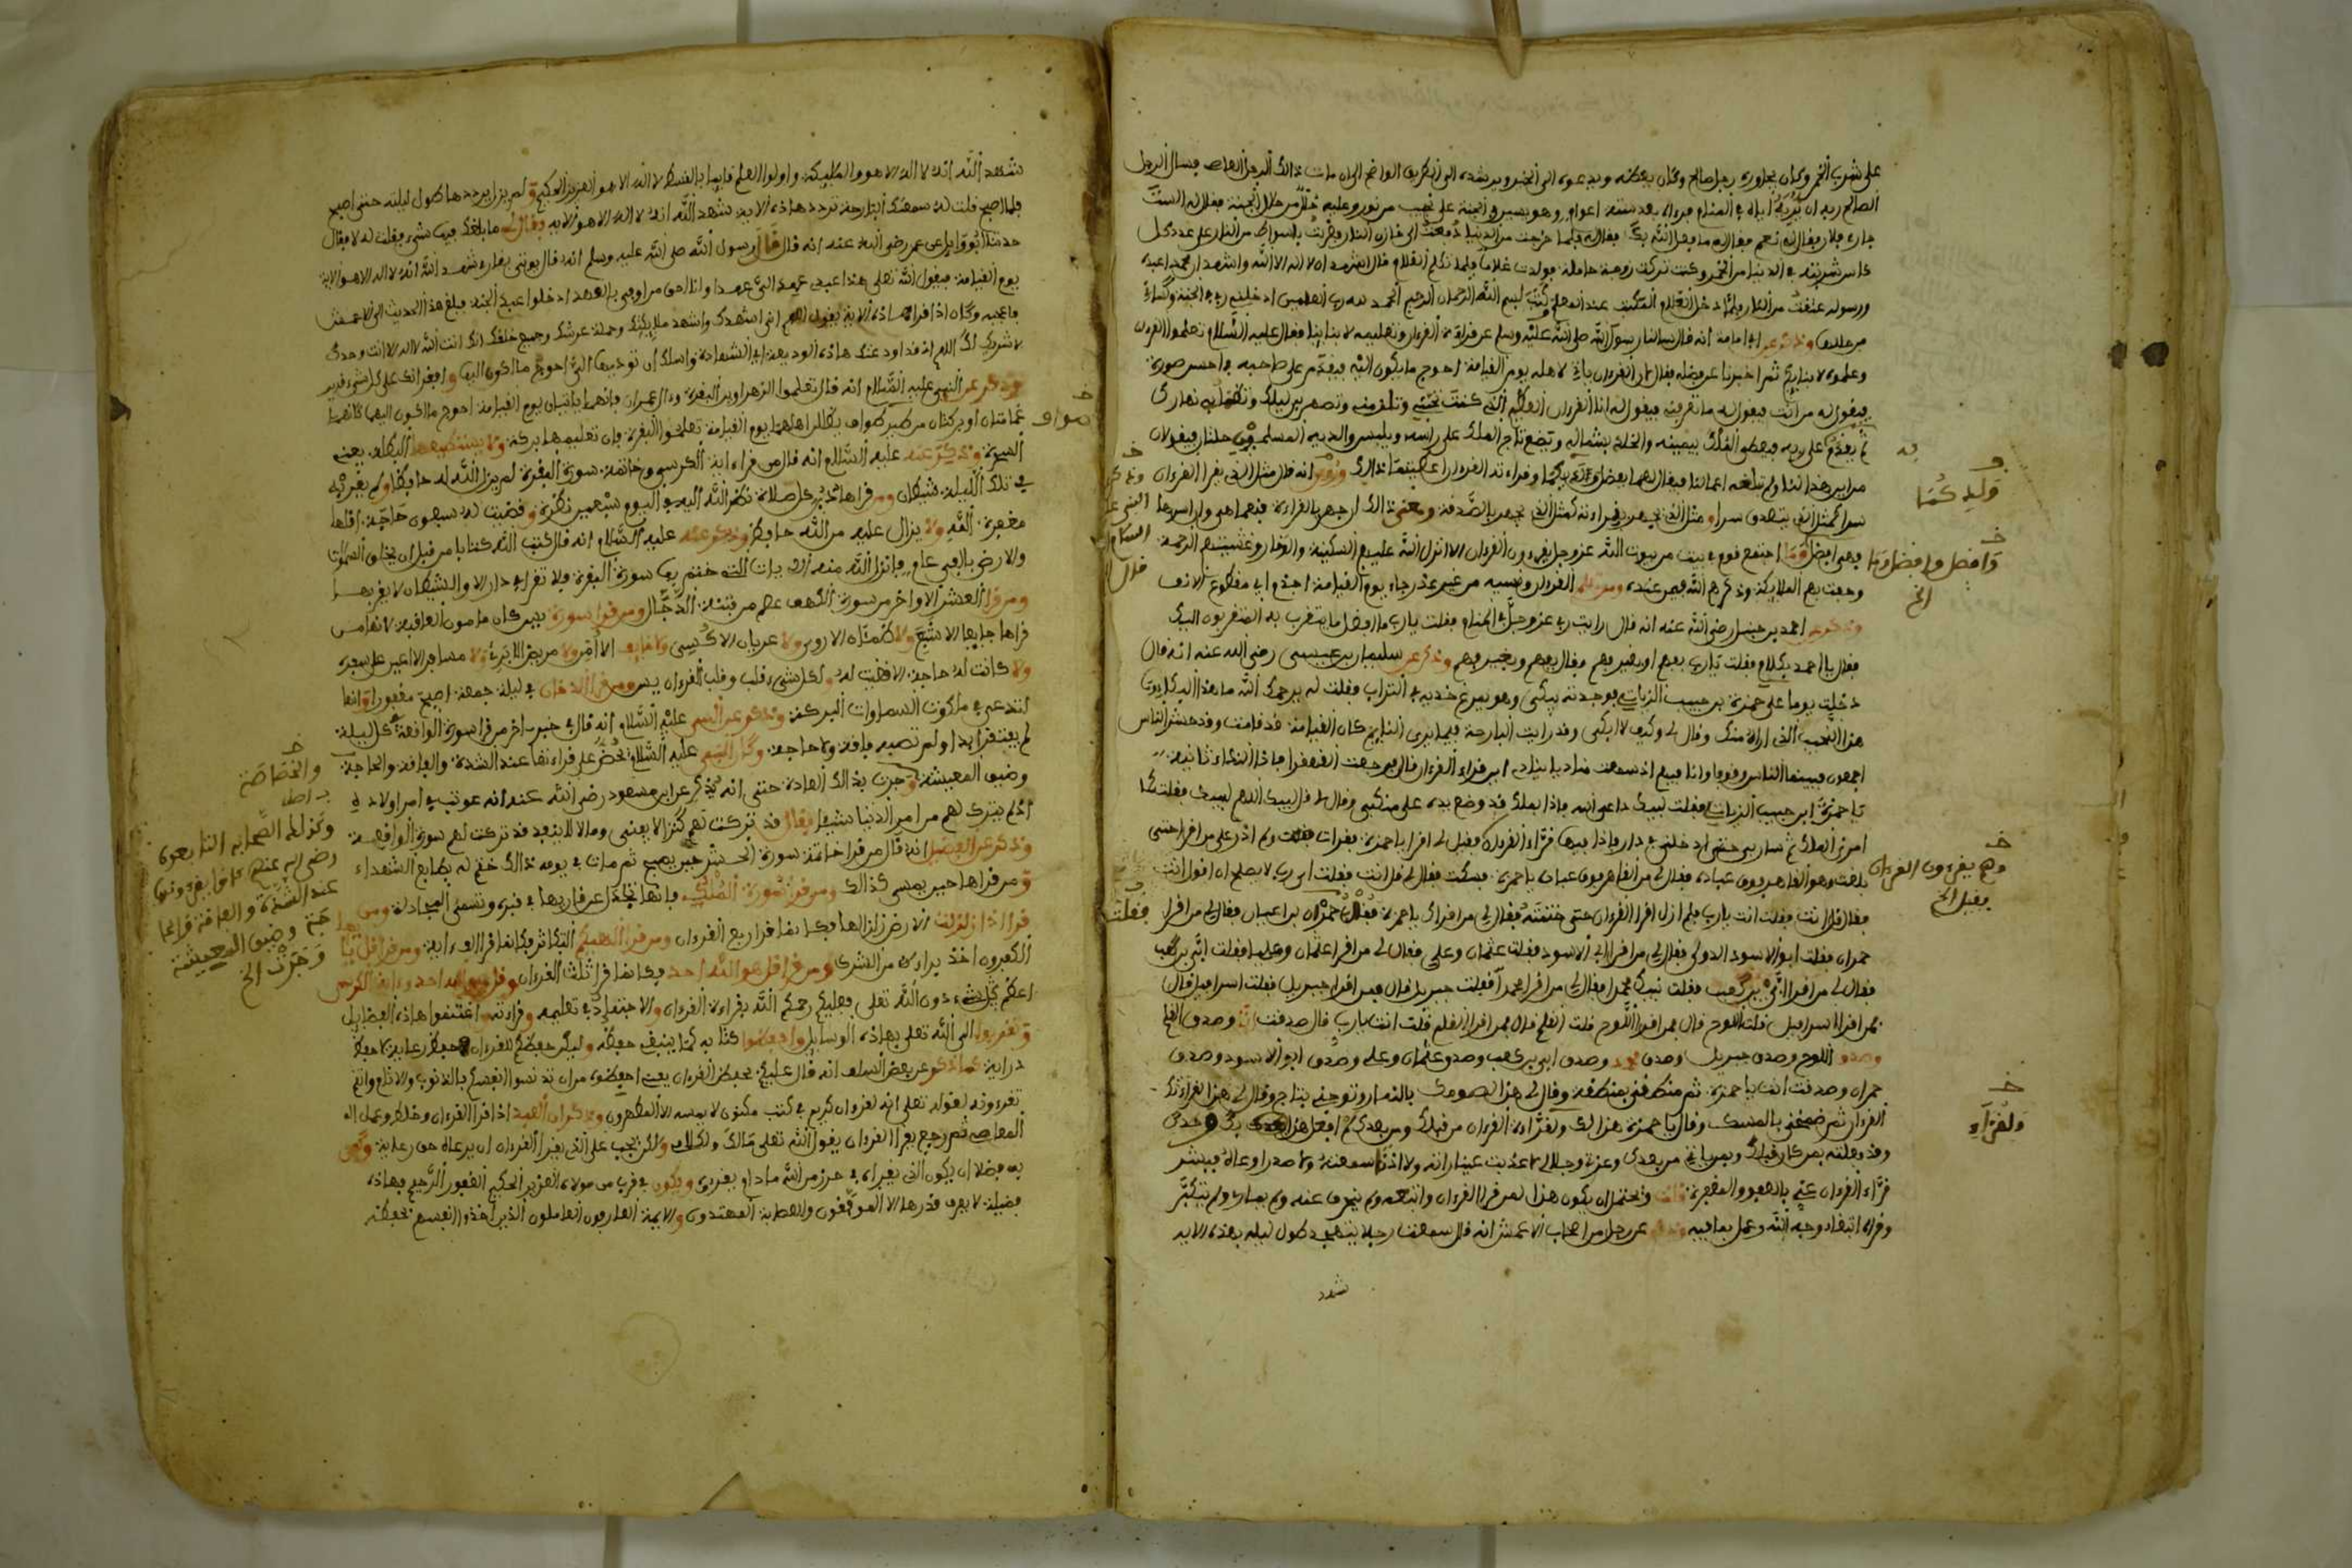 على شرب الخمر وكان بجواره رجل صالح وكان يعظه ويدعوه الى الخير ويرشده الى الطريق الواضح الى ان مات ذالك الرجل العاصي فسال الرجل
الصالح ربه ان يريه اياه في المنام فرءاه بعد ستة اعوام وهو يسير في الجنة على نجيب من نور وعليه حلل من حلل الجنة فقال له الست
جاري فلان فقال له نعم فقال له ما فعل الله بك فقال له لما خرجت من الدنيا دفعت الى خازن النار فضربت بالسواط من النار على عدد كل
كاس شربته في الدنيا من الخمر وكنت تركت زوجة حاملة فولدت غلاما فلما تكلم الغلام قال اشهد ان لا اله الا الله واشهد ان محمدا عبده
ورسوله عتقت من النار فلما دخل الغلام المكتب عند المعلم كتب بسم الله الرحمان الرحيم الحمد لله رب العلمين ادخلني ربي الجنة وكساني
من حللها وذكر عن ابي امامة انه قال سالنا رسول الله صلى الله عليه وسلم عن قراءة القرءان وتعليمه لابنائنا فقال عليه السلام تعلموا القرءان
وعلموه لابنائكم ثم اخبرنا عن فضله فقال ان القرءان ياتي لاهله يوم القيامة احوج ما يكون اليه فيقدم على صاحبه في احسن صورة
فيقول له من انت فيقول له ما تعرفني فيقول له انا القرءان العظيم الذي كنت تحبني وتلازمني وتسهر بي ليلك وتظمأ بي نهارك
ثم يقدم على ربه فيعطى الملك بيمينه والخلد بشماله ويضع تاج الملك على راسه ويلبس والديه المسلمين حلتان فيقولان
من اين هذا لنا ولم تبلغه اعمالنا فيقال لهما بفضل ولدكما وقراءته القرءان اعطيتما ذالك وروي انه قال مثل الذي يقرا القرءان
سرا كمثل الذي يتصدق سرا ومثل الذي يجهر بقراءته كمثل الذي يجهر بالصدقة ومعنى ذالك ان جهر بالقراءة فنعما هي وان اسرها
فهي افضل وما اجتمع قوم في بيت من بيوت الله عز وجل يقرءون القرءان الا انزل الله عليهم السكينة والوقار وغشيتهم الرحمة
وحفت بهم الملايكة وذكرهم الله فيمن عنده ومن تعلم القرءان ونسيه من غير عذر جاء يوم القيامة اجذم اي مقطوع الانف
وذكر عن احمد بن حنبل رضي الله عنه انه قال رايت ربي عز وجل في المنام فقلت يا رب ما افضل ما يتقرب به المتقربون اليك
فقال يا احمد بكلامي فقلت يا رب بفهم او بغير فهم فقال بفهم وبغير فهم وذكر عن سليمان بن عيسى رضي الله عنه انه قال
دخلت يوما على حمزة بن حبيب الزيات فوجدته يبكى وهو يمرغ خديه في التراب فقلت له يرحمك الله ما هذا البكاء و
هذا النحيب الذي اراه منك وقال لي وكيف لا ابكي وقد رايت البارحة فيما يرى النايم كان القيامة قد قامت وقد حشر الناس
اجمعون فبينما الناس وقوفا وانا فيهم اذ سمعت مناديا ينادي اين قراء القرءان قال فرجعت القهقرا فاذا النداء ثانية
يا حمزة ابن حبيب الزيات فقلت لبيك داعي الله فاذا بملك قد وضع يده على منكبي وقال لي قل لبيك اللهم لبيك فقلت كما
امرني الملك ثم سار بي حتى ادخلني في دار فاذا فيها قراء القرءان فقيل لي اقرا يا حمزة فقرات فقلت ولم ادر على من اقرا حتى
بلغت وهو القاهر فوق عباده فقال لي من القاهر فوق عباده يا حمزة فسكت فقال لي قل انت فقلت اي ربي لا يصلح ان اقول انت
فقال قل انت فقلت انت يا رب فلم ازل اقرا القرءان حتى ختمته فقال لي من اقراك يا حمزة فقلت حمران بن اعين فقال لي من اقرا
حمران فقلت ابو الاسود الدولي فقال لي من اقرا ابي الاسود فقلت عثمان وعلي فقال لي من اقرا عثمان وعليا فقلت ابي بن كعب
فقال لي من اقرا ابي بن كعب فقلت نبيك محمد فقال لي من اقرا محمدا فقلت جبريل قال فمن اقرا جبريل فقلت اسرافيل قال
فمن اقرا اسرافيل قلت اللوح قال فمن اقرا اللوح قلت القلم قال فمن اقرا القلم قلت انت يا رب قال صدقت انا وصدق القلم
وصدق اللوح وصدق جبريل وصدق محمد وصدق ابي بن كعب وصدق عثمان وعلي وصدق ابو الاسود وصدق
حمران وصدقت انت يا حمزة ثم منطقني بمنطقة وقال لي هذا لصومك بالنهار وتوجني بتاج وقال لي هذا لقراءتك
القرءان ثم ضمخني بالمسك وقال يا حمزة هذا لك ولقراءة القرءان من قبلك ومن بعدك لم افعل هذا بك وحدك
وقد فعلته بمن كان قبلك وبمن ياتي من بعدك وعزتي وجلالي لا عذبت عينا راته ولا اذنا سمعته ولا صدرا وعاه فبشر
قراء القرءان عني بالعفو والمغفرة ويحتمل ان يكون هذا لمن قرا القرءان واتبعه ولم ينحرف عنه ولم يمار ولم يتكبر
وقراه ابتغاء وجه الله وعمل بما فيه وذكر عن رجل من اصحاب الاعمش انه قال سمعت رجلا يتهجد طول ليله بهذه الاية
شهد
ولدكما
وافضل وافضل وما
الخ
وذكر عن
النبي عليه
السلام
قال
وهم يقرءون القرءان
فقيل الخ
فقلت
ولقراء
شهد الله انه لا اله الا هو والمليكة واولوا العلم قايما بالقسط لا اله الا هو العزيز الحكيم ولم يزل يرددها طول ليلته حتى اصبح
فلما اصبح قلت له سمعتك البارحة تردد هاذه الاية شهد الله انه لا اله الا هو الاية فقال لي ما بلغك فيها شيء فقلت له لا فقال
حدثنا ابو وايل عن عمر رضي الله عنه انه قال قال رسول الله صلى الله عليه وسلم انه قال يوتى بقارئ شهد الله انه لا اله الا هو الاية
يوم القيامة فيقول الله تعلى هذا عبدي عهد الي عهدا وانا احق من اوفى بالعهد ادخلوا عبدي الجنة فبلغ هذا الحديث الى الاعمش
فاعجبه وكان اذا قرا هاذه الاية يقول اللهم اني اشهدك واشهد ملايكتك وحملة عرشك وجميع خلقك انك انت الله لا اله الا انت وحدك
لا شريك لك اللهم اني قد اودعتك هاذه الوديعة اي الشهادة واسلك ان توديها الي احوج ما اكون اليها وافقرانك على كل شيء قدير
وذكر عن النبي عليه السلام انه قال تعلموا الزهراوين البقرة وءال عمران فانهما ياتيان يوم القيامة احوج ما تكون اليهما كانهما
غمامتان او فرقتان من طير صواف يظلان اهلهما يوم القيامة تعلموا البقرة فان تعليمها بركة ولا يستطيعها البطلة يعني
السحرة وذكر عنه عليه السلام انه قال من قراء اية الكرسي وخاتمة سورة البقرة لم يزل الله له حافظا ولم يقربه
في تلك الليلة شيطان ومن قراها دبر كل صلاة نظر الله اليه في اليوم سبعين نظرة وقضيت له سبعون حاجة اقلها
مغفرة الله ولا يزال عليه من الله حافظ وذكر عنه عليه السلام انه قال كتب الله كتابا من قبل ان يخلق السموات
والارض بالفي عام فانزل الله منه الايات التي ختم بها سورة البقرة ولا تقرا في دار الا والشيطان لا يقربها
ومن قرا العشر الاواخر من سورة الكهف عصم من فتنة الدجال ومن قرا سورة يس كان مامون العاقبة لانه ما من
قراها جايعا الا شبع ولا ظمئان الا روي ولا عريان الا كسي ولا خايف الا امن ولا مريض الا برئ ولا مسافر الا اعين على سفره
ولا كانت له حاجة الا قضيت له لكل شيء قلب وقلب القرءان يس ومن قرا الدخان في ليلة جمعة اصبح مغفورا وانها
لتدعى في ملكوت السماوات البركة وذكر عن النبي عليه السلام انه قال في خبر اخر من قرا سورة الواقعة كل ليلة
لم يفتقر ابدا ولم تصبه فاقة ولا حاجة وكان النبي عليه السلام يحض على قراءتها عند الشدة والفاقة والحاجة
وضيق المعيشة وجرت بذالك العادة حتى انه يذكر عن ابن مسعود رضي الله عنه انه عوتب في امر اولاده
اذ لم يترك لهم من امر الدنيا شيئا فقال قد تركت لهم كنزا لا يفنى ومالا لا ينفد قد تركت لهم سورة الواقعة
وذكر عن الفضل انه قال من قرا خاتمة سورة الحشر حين يصبح ثم مات في يومه ذالك ختم له بطابع الشهداء
ومن قراها حين يمسي كذالك ومن قرا سورة الملك فانها تجادل عن قاريها في قبره وتسمى المجادلة ومن
قرا اذا زلزلت الارض زلزالها فكانما قرا ربع القرءان ومن قرا الهيكم التكاثر فكانما قرا الف ءاية ومن قرا قل يا ايها
الكفرون اخذ براءة من الشرك ومن قرا قل هو الله احد فكانما قرا ثلث القرءان وقل هو الله احد وءاية الكرسي
اعظم كل شيء دون الله تعلى فعليكم رحمكم الله بقراءة القرءان والاجتهاد في تعليمه وقراءته واغتنموا هاذه الفضايل
وتقربوا الى الله تعلى بهاذه الوسايل واحفظوا كتابه كما ينبغي حفظه وليكن حفظكم للقرءان حفظ رعاية لا حفظ
دراية كما ذكر عن بعض السلف انه قال عليكم بحفظ القرءان يعني احفظوه من ان تدنسوا انفسكم بالذنوب والاثام وانتم
تقرءونه لقوله تعلى انه لقرءان كريم في كتب مكنون لا يمسه الا المطهرون وذكر ان العبد اذا قرا القرءان وخلط وعمل
المعاصي ثم رجع يقرا القرءان يقول الله تعلى مالك ولكلامي ولاكن يجب على الذي يقرا القرءان ان يرعاه حق رعايته وكفى
به فضلا ان يكون الذي يقراه في حرز من الله ما دام يقرؤه ويكون في قرب من مولاه العزيز الحكيم الغفور الرحيم فهاذه
فضيلة لا يعرف قدرها الا الموفقون والعصابة المهتدون والايمة العارفون العاملون الذين اخذوا انفسهم بحفظه
صواف
والخصاصة
وكذلك الصحابة التابعون
رضي الله عنهم كانوا يقرءونها
عند الشدة والفاقة والحا
جة وضيق المعيشة
وجرت الخ